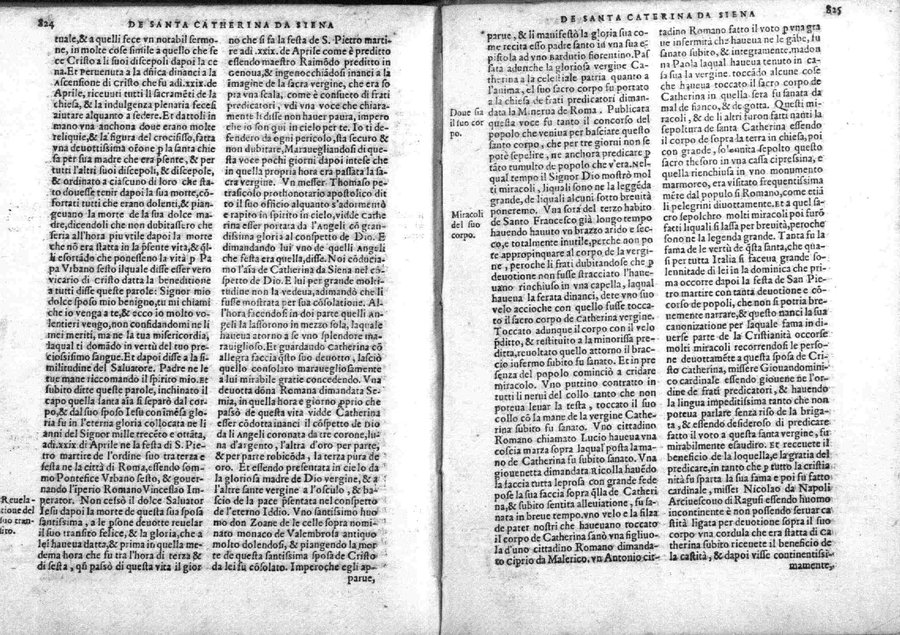 824
DE SANTA CATHERINA DA SIENA
tuale,& a quelli fece vn notabil sermo-
ne, in molte cose simile a quello che fe-
ce Cristo a li suoi discepoli dapoi la ce
na. Et peruenuta a la dñica dinanci a la
Ascensione di cristo che fu adi.xxix.de
Aprile, riceuuti tutti li sacramēti de la
chiesa, & la indulgenza plenaria fecesi
aiutare alquanto a sedere. Et dattoli in
mano vna anchona doue erano molte
reliquie,& la figura del crocifisso, fatta
vna deuottissima orōne p la santa chie
sa per sua madre che era psente, & per
tutti l'altri suoi discepoli, & discepole,
& ordinato a ciascuno di loro che sta-
to douesse tenir dapoi la sua morte, cō-
fortati tutti che erano dolenti, & pian-
geuano la morte de la sua dolce ma-
dre, dicendoli che non dubitassero che
seria all'hora piu vtile dapoi la morte
che nō era statta in la psente vita, &
esortādo che ponesseno la vita p Pa
Pa Vrbano sesto ilquale disse esser vero
vicario di cristo datta la beneditione
a tutti disse queste parole: Signor mio
dolce sposo mio benigno, tu mi chiami
che io venga a te,& ecco io molto vo-
lentieri vengo, non confidandomi ne li
mei meriti, ma ne la tua misericordia,
laqual ti domādo in vertù del tuo pre-
ciosissimo sangue. Et dapoi disse a la si-
militudine del Saluatore. Padre ne le
tue mane riccomando il spirito mio. Et
subito ditte queste parole, inchinato il
capo quella santa aīa si separò dal cor-
po,& dal suo sposo Iesu con īmēsa glo-
ria fu in l'eterna gloria collocata ne li
anni del Signor mille trecēto e ottāta,
adi.xxix di Aprile ne la festa di S. Pie-
tro martire de l'ordine suo tra terza e
festa ne la città di Roma, essendo som-
mo Pontefice Vrbano sesto, & gouer-
nando l'sperio Romano Vincessao Im
perator. Non cessò il dolce Saluator
Iesu dapoi la morte de questa sua sposa
santissima, a le psone deuotte reuelar
il suo transito felice, & la gloria, che a
lei haueua datta,& prima in quella me-
dema hora che fu tra l'hora di terza &
di sesta, passò di questa vita il gior
Reuela-
tione del
suo tran-
sito.
no che si fa la festa de S. Pietro marti-
re adi .xxix. de Aprile come è preditto
essendo maestro Raimōdo preditto in
Genoua,& ingenocchiādosi inanci a la
imagine de la sacra vergine, che era so
pra vna scala, come è consueto di frati
predicatori, vdi vna voce che chiara-
mente li disse non hauer paura, impero
che io son qui in cielo per te. Io ti de-
fendero da ogni pericolo, sta securo &
non dubitare. Marauegliandosi di que-
sta voce pochi giorni dapoi intese che
in quella propria hora era passata la sa-
cra vergine. Vn messer Thomaso pe-
tra scolo prothonotario apostolico dit
to il suo officio alquanto s'adormentò
e rapito in spirito in cielo, vidde Cathe
rina esser portata da l'Angeli cō gran-
dissima gloria al conspetto de Dio. E
dimandando lui vno de quelli Angeli
che festa era quella, disse. Noi cōducia-
mo l'aīa de Catherina da Siena nel cō-
spetto de Dio. E lui per grande molti-
tudine non la vedeua, adimandò che li
fusse mostrata per sua cōsolatione. Al-
l'hora facendosi in doi parte quelli an-
geli la lassorono in mezzo sola, laquale
haueua atorno a se vno splendore ma-
rauiglioso. Et guardando catherina con
allegra faccia qsto suo deuotto, lasciò
quello consolato marauegliosamente
a lui mirabile gratie concedendo. Vna
deuotta dōna Romana dimandata Se-
mia, in quella hora e giorno pprio che
passò de questa vita vidde Catherina
esser cōdotta inanci il cōspetto de nio
da li Angeli coronata da tre corone, lu-
na d'argento, l'altra d'oro per parte,
& per parte robicōda, la terza pura de
oro. Et essendo presentata in cielo da
la gloriosa madre de Dio vergine, & a
l'altre sante vergine a l'osculo, & ba-
scio de la pace psentata nel conspetto
de l'eterno Iddio. Vno santissimo huo
mo don Zoane de le celle sopra nomi
nato monaco de Valembrosa antiquo
molto dolendosi, & piangendo la mor
te de questa santissima sposa de Cristo
da lei fu cōsolato. Imperoche egli ap-
parue,
DE SANTA CATERINA DA SIENA
825
parue, & li manifestò la gloria sua co-
me recita esso padre santo in vna sua e-
pistola ad vno Barduccio fiorentino. Pas
sata adunche la gloriosa vergine Ca-
therina a la celestiale patria quanto a
l'anima, el suo sacro corpo fu portato
a la chiesa de frati predicatori diman-
data la Minerua de Roma. Publicata
questa voce fu tanto il concorso del
popolo che veniua per basciare questo
santo corpo, che per tre giorni non se
potè sepelire, ne anchora predicare p
tāto tumulto de popolo che v'era. Nel
qual tempo il Signor Dio mostrò mol
ti miracoli, liquali sono ne la leggēda
grande, de liquali alcuni sotto breuità
poneremo. Vna sora del terzo habito
de Santo Francesco già longo tempo
hauendo hauuto vn brazzo arido e sec-
co, e totalmente inutile, perche non po
te appropinquare al corpo de la vergi-
ne, peroche li frati dubitandose che p
deuotione non fusse stracciato l'haue-
uano rinchiuso in vna capella, laqual
haueua la ferata dinanci, dete vno suo
velo accioche con quello fusse tocca-
to il sacro corpo de Catherina vergine.
Toccato adunque il corpo con il velo
pditto, & restituito a la minorissa pre-
ditta, reuoltato quello attorno il brac-
cio infermo subito fu sanato. Et in pre
senza del popolo cominciò a cridare
miracolo. Vno puttino contratto in
tutti li nerui del collo tanto che non
poteua leuar la testa, toccato il suo
collo cō la mane de la vergine Cathe-
rina subito fu sanato. Vno cittadino
Romano chiamato Lucio haueua vna
coscia marza sopra laqual posta la ma-
no de Catherina fu subito sanato. Vna
giouenetta dimandata Ricolla hauēdo
la faccia tutta leprosa con grande fede
pose la sua faccia sopra de Catheri
na,& subito sentita alleuiatione, fu sa-
nata in breue tempo. vno velo e la filza
de pater nostri che haueuano toccato
il corpo de Catherina sanò vna figliuo-
la d'uno cittadino Romano dimanda-
to ciprio da Malerico. vn Antonio cit-
Doue sia
il suo cor
po.
Miracoli
del suo
corpo.
tadino Romano fatto il voto p vna gra
ue infermità che haueua ne le gābe, fu
sanato subito, & integramente. madon
na Paola laqual haueua tenuto in ca-
sa sua la vergine. toccādo alcune cose
che haueua toccato il sacro corpo de
Catherina in quella sera fu sanata da
mal de fianco, & de gotta. Questi mi-
racoli, & de li altri furon fatti nanti la
sepoltura de santa Catherina essendo
il corpo de sopra la terra in chiesa, poi
con grande, solēnità sepolto questo
sacro thesoro in vna cassa cipressina, e
quella rienchiusa in vno monumento
marmoreo, era visitato frequentissima
mēte dal populo si Romano, come etiā
li pelegrini diuottamente. Et a quel sa-
cro sepolchro molti miracoli poi furō
fatti liquali si lassa per breuità, peroche
sono ne la legenda grande. Tanta fu la
fama de le vertù de qsta santa, che qua-
si per tutta Italia si faceua grande so-
lennitade de lei in la dominica che pri-
ma occorre dapoi la festa de San Pie-
tro martire con tanta deuotione e cō-
corso de popoli, che non si potria bre-
uemente narrare,& questo nanci la sua
canonizatione per laquale fama in di-
uerse parte de la Cristianità occorse
molti miracoli recorrendosi le perso-
ne deuottamēte a questa sposa de Cri-
sto Catherina, misēre Giouandomini-
co cardinale essendo giouene ne l'or-
dine de frati predicatori, & hauendo
la lingua impeditissima tanto che non
poteua parlare senza riso de la briga-
ta, & essendo desideroso di predicare
fatto il voto a questa santa vergine, fu
mirabilmente esaudito. Et receuete il
beneficio de la loquella, e la gratia del
predicare, in tanto che p tutto la cristia
nità fu sparta la sua fama e poi fu fatto
cardinale, misser Nicolao da Napoli
Arciuescouo di Ragusi essendo huomo
incontinente è non possendo seruar ca
stità ligata per deuotione sopra il suo
corpo vna cordula che era stata di Ca-
therina subito riceuete il beneficio de
la castità, & dapoi visse continentissi-
mamente,